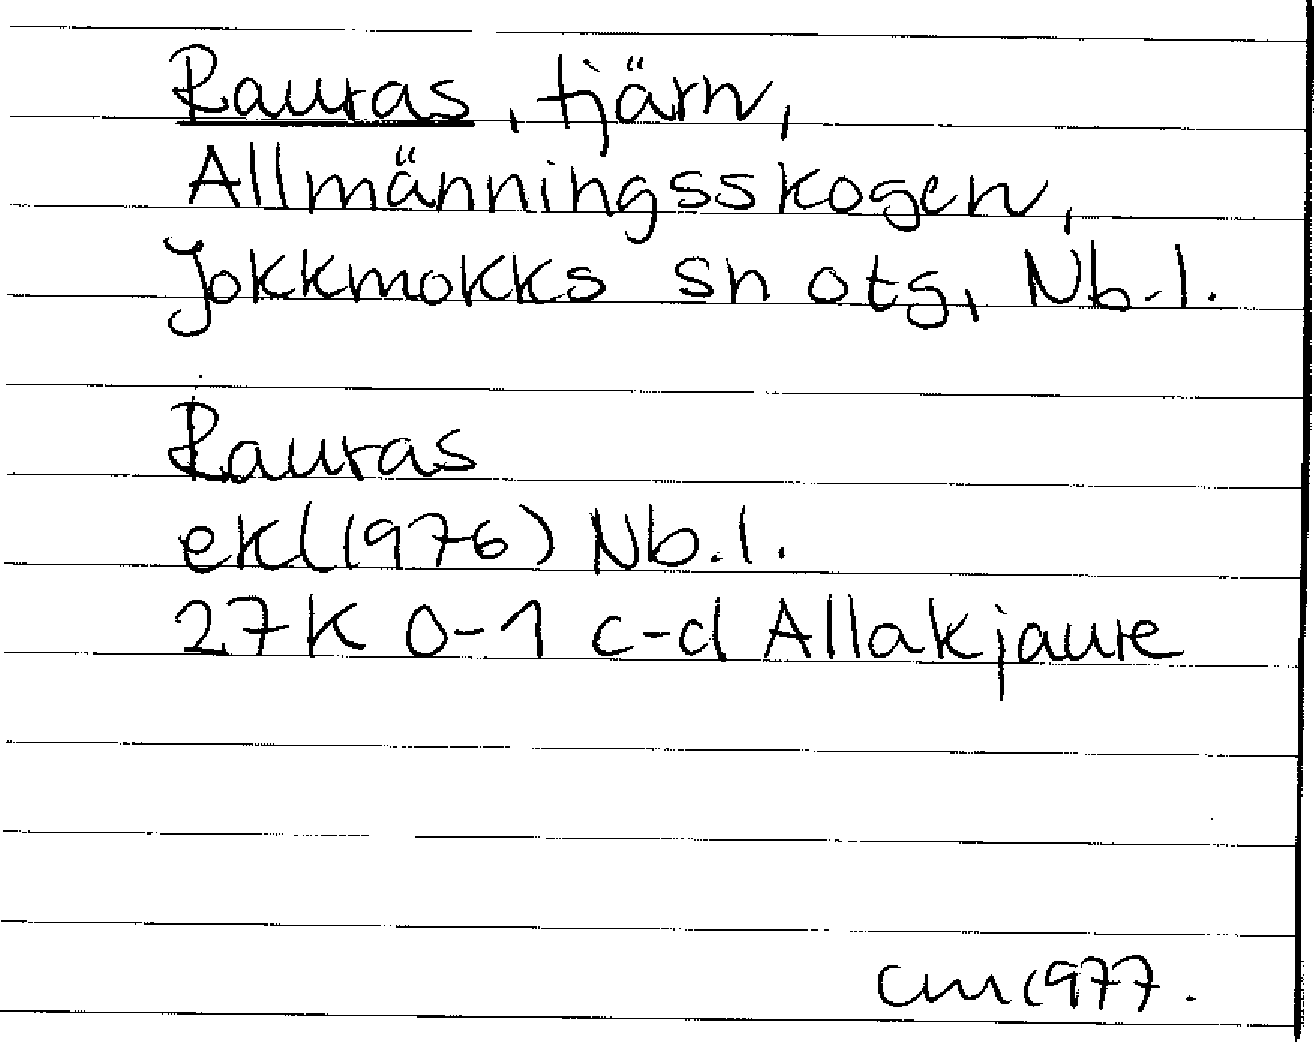 Rauras, tjärn,
Allmänningsskogen,
Jokkmokks sn otg, Nb.l.
Rauras
ekl(1976) Nb.l.
27K 0-1 c-d Allakjaure
CM 1977.